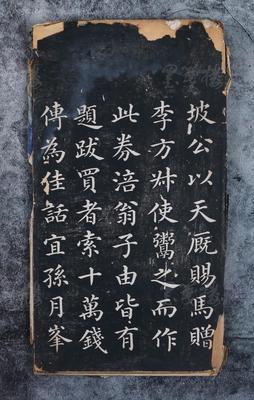 坡公以天厩賜馬贈
李方叔使鬻之而作
此券涪翁子由皆有
題跋買者索十萬錢
傳為佳話宜孫月峯